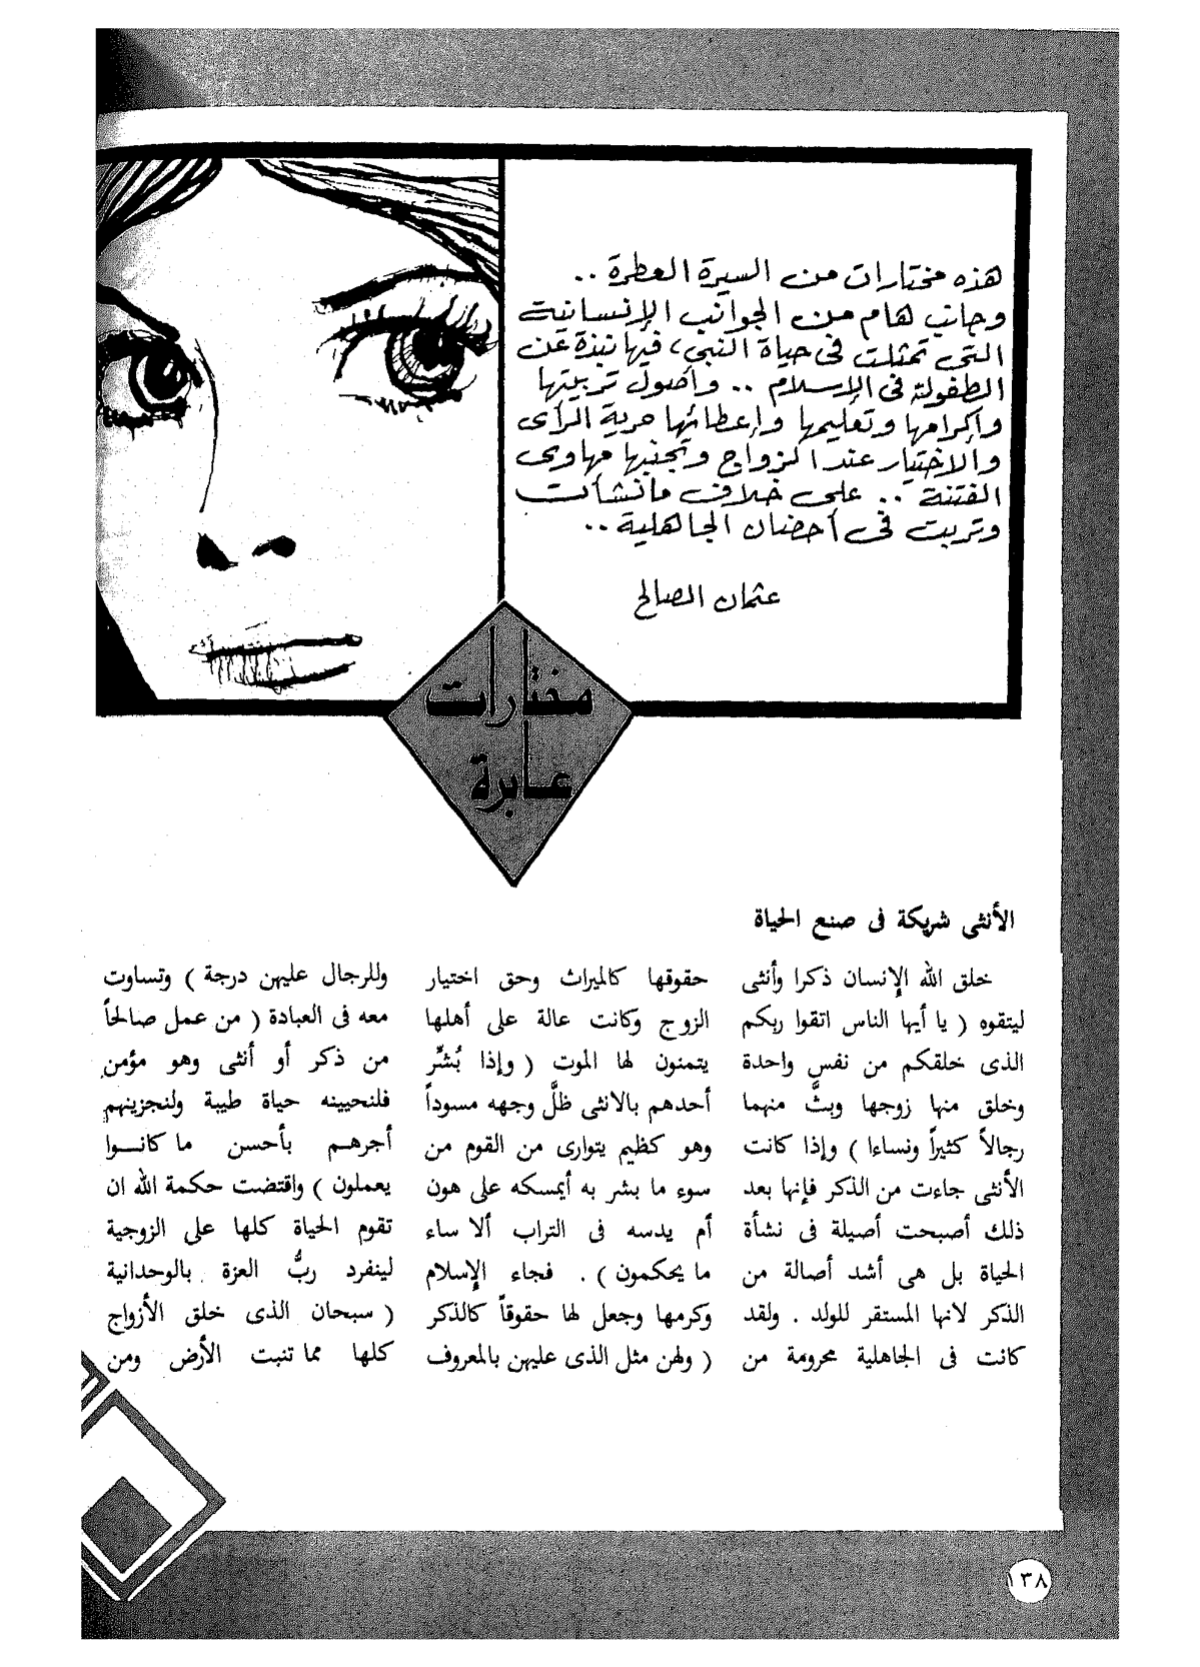 هذه مختارات من السيرة العطرة ..
وجانب هام من الجوانب الإنسانية
التى تمثلت فى حياة النبى ، فيها نبذة عن
الطفولة فى الإسلام .. وأصول تربيتها
وإكرامها وتعليمها وإعطائها حرية الرأى
والاختيار عند الزواج وتجنبها مهاوى
الفتنة .. على خلاف ما نشأت
وتربت فى أحضان الجاهلية ..
عثمان الصالح
مختارات
عابرة
الأنثى شريكة فى صنع الحياة
خلق الله الإنسان ذكرا وأنثى
ليتقوه ( يا أيها الناس اتقوا ربكم
الذى خلقكم من نفس واحدة
وخلق منها زوجها وبثَّ منهما
رجالاً كثيراً ونساءا ) وإذا كانت
الأنثى جاءت من الذكر فإنها بعد
ذلك أصبحت أصيلة فى نشأة
الحياة بل هى أشد أصالة من
الذكر لانها المستقر للولد . ولقد
كانت فى الجاهلية محرومة من
حقوقها كالميراث وحق اختيار
الزوج وكانت عالة على أهلها
يتمنون لها الموت ( وإذا بُشِّر
أحدهم بالانثى ظلَّ وجهه مسوداً
وهو كظيم يتوارى من القوم من
سوء ما بشر به أيمسكه على هون
أم يدسه فى التراب ألا ساء
ما يحكمون ) . فجاء الإسلام
وكرمها وجعل لها حقوقاً كالذكر
( ولهن مثل الذى عليهن بالمعروف
وللرجال عليهن درجة ) وتساوت
معه فى العبادة ( من عمل صالحاً
من ذكر أو أنثى وهو مؤمن
فلنحيينه حياة طيبة ولنجزينهم
أجرهم بأحسن ما كانوا
يعملون ) واقتضت حكمة الله ان
تقوم الحياة كلها على الزوجية
لينفرد ربُّ العزة بالوحدانية
( سبحان الذى خلق الأزواج
كلها مما تنبت الأرض ومن
١٣٨